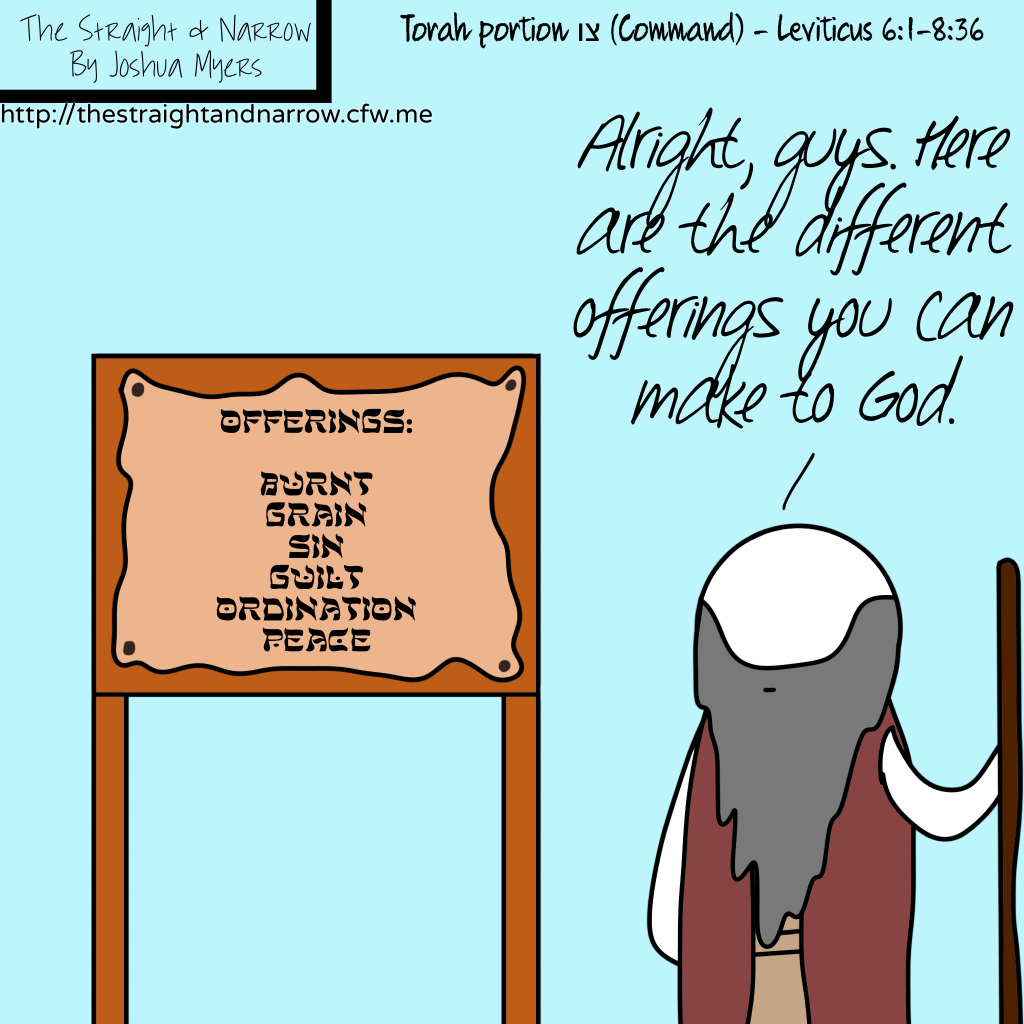 The Straight & Narrow
By Joshua Myers
Torah portion צו (Command) - Leviticus 6:1-8:36
http://thestraightandnarrow.cfw.me
Alright, guys. Here
are the different
offerings you can
make to God.
OFFERINGS:
BURNT
GRAIN
SIN
GUILT
ORDINATION
PEACE